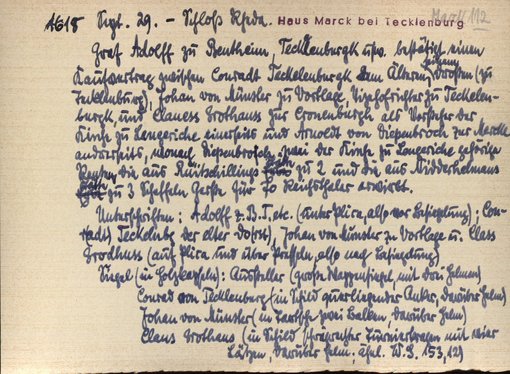 1618 Sept. 29. - Schloß Rheda. Haus Marck bei Tecklenburg Mark 112
Graf Adolff zu Bentheim, Tecklenburgk usw. bestätigt einen
Kaufvertrag zwischen Conradt Teckelenburgk dem Älteren, Dorsten (zu
Tecklenburg), Johan von Münster zu Vortlage, Vizehofrichter zu Teckelen-
burgk, und Clauess Grothauss zur Cronenburgh als Vorsteher der
Kirche zu Lengeriche einerseits und Arnoldt von Diepenbroch zur Marck
anderseits, wonach Diepenbroch zwei der Kirche zu Lengeriche gehörige
die aus Rutschillings zu 2 und die aus Nidderhelmans
zu 3 Scheffeln Gerste für 70 Reichsthaler erwirbt.
Unterschriften: Adolff z. B. T. etc. (unter Plica, also vor Besiegelung); Con-
radt Tecklenbg der elter, Johan von Münster zu Vortlage u. Claes
Grodhuss (auf Plica und über Presseln, also nach Besiegelung)
Siegel (in Holzkapseln): Aussteller (großes Wappensiegel mit drei Helmen)
Conrad von Tecklenburg (in Schild querliegender Anker, darüber Helm)
Johan von Münster (in Tartsche zwei Balken, darüber Helm)
Claus Grothaus (in Schild schrägrechter Turnierkragen mit vier
Lätzen, darüber Helm. ähnl. W. S. 153,12)